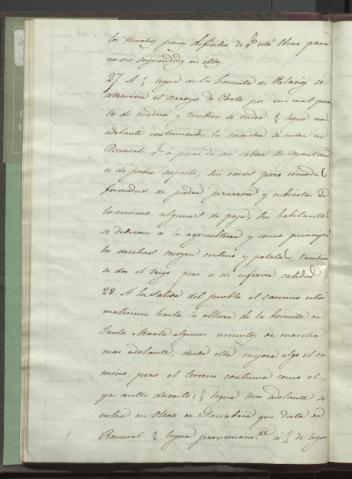 los muchos pasos difíciles de qe está lleno para
no ser sorprendido en ellos.
27. A ½ legua de la hermita de Palacios se
atraviesa el arroyo de Ponto por un mal puen
te de madera y tambien se vadea ½ legua mas
adelante continuando la marcha se entra en
Rosinal qe a pesar de ser cabeza de Ayuntamto
es de pobre aspecto, sus casas poco comodas
formadas de piedra pizarrosa y cubiertas de
lo mismo algunas de paja, sus habitantes
se dedican a la agricultura y como principa
les cosechas recogen centeno y patata, tambien
se da el trigo, pero es de inferior calidad
28. A la salida del pueblo el camino está
malísimo hasta la altura de la hermita de
Santa Marta algunos minutos de marcha
mas adelante, desde ella mejora algo el ca
mino, pero el terreno continua como el
ya antes descrito; ½ legua mas adelante se
entra en Otero de Sanabria que dista de
Rosinal ½ legua proximamte a ¼ de legua